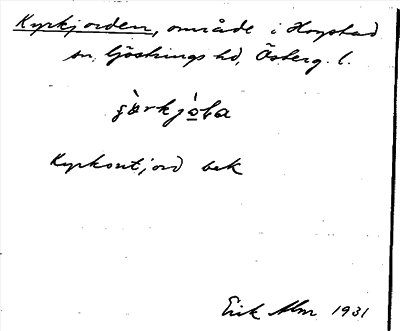 Kyrkjorden, område i Hogstad
sn, Göstrings hd, Österg. l.
Kyrkoutjord bek
Erik Alm 1931